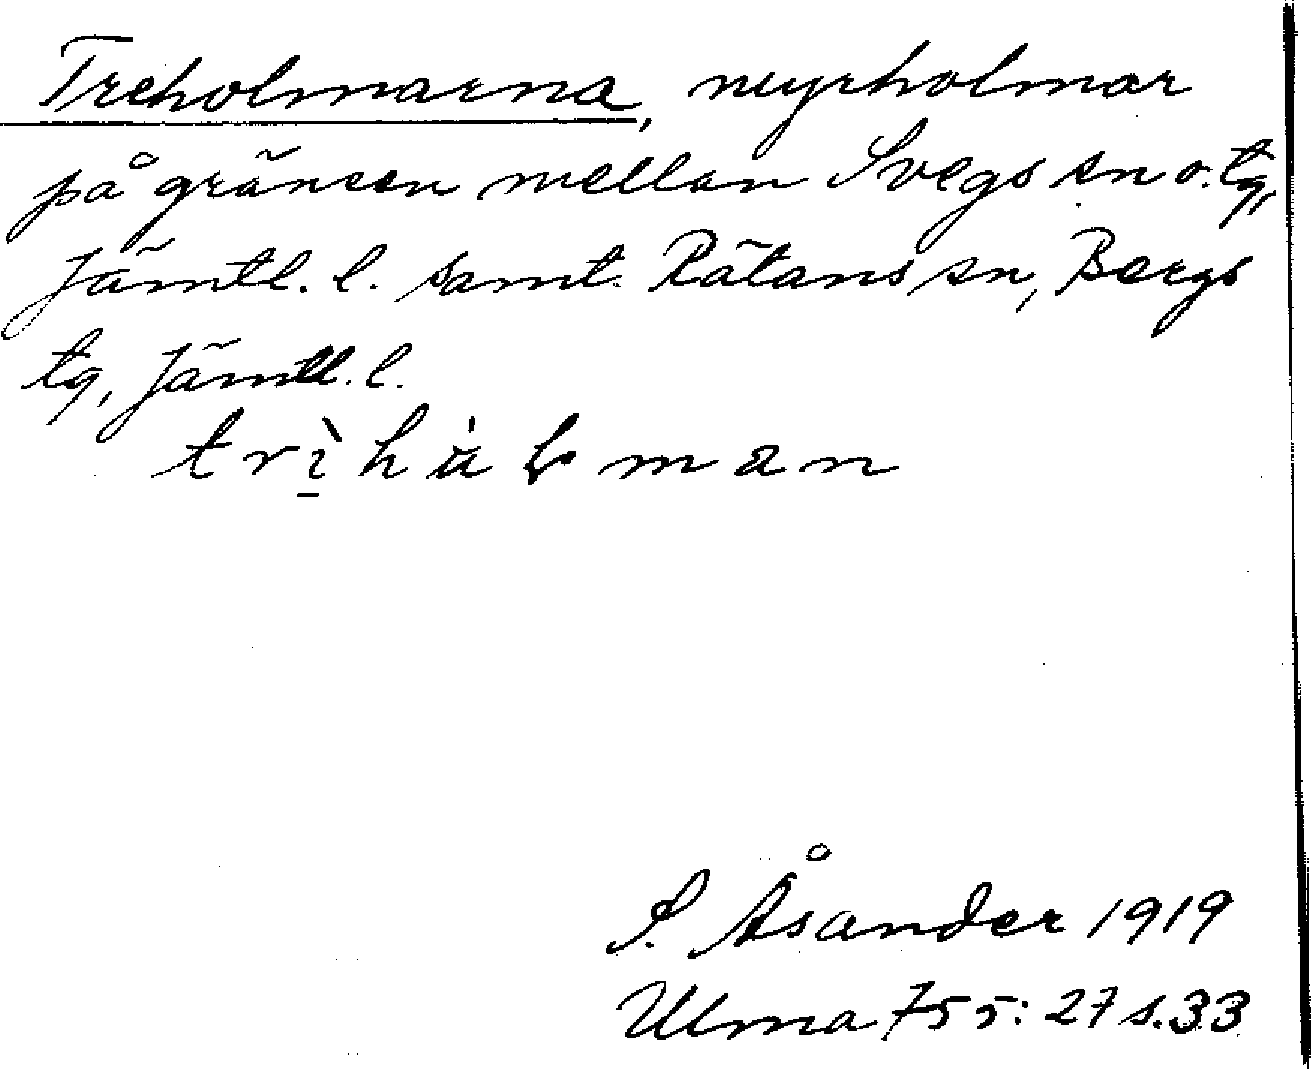 Treholmarna, myrholmar
på gränsen mellan Svegs sn o. tg,
Jämtl. l. samt. Rätans sn, Bergs
tg, Jämtl. l.
S. Åsander 1919
Ulma 755: 27 s. 33